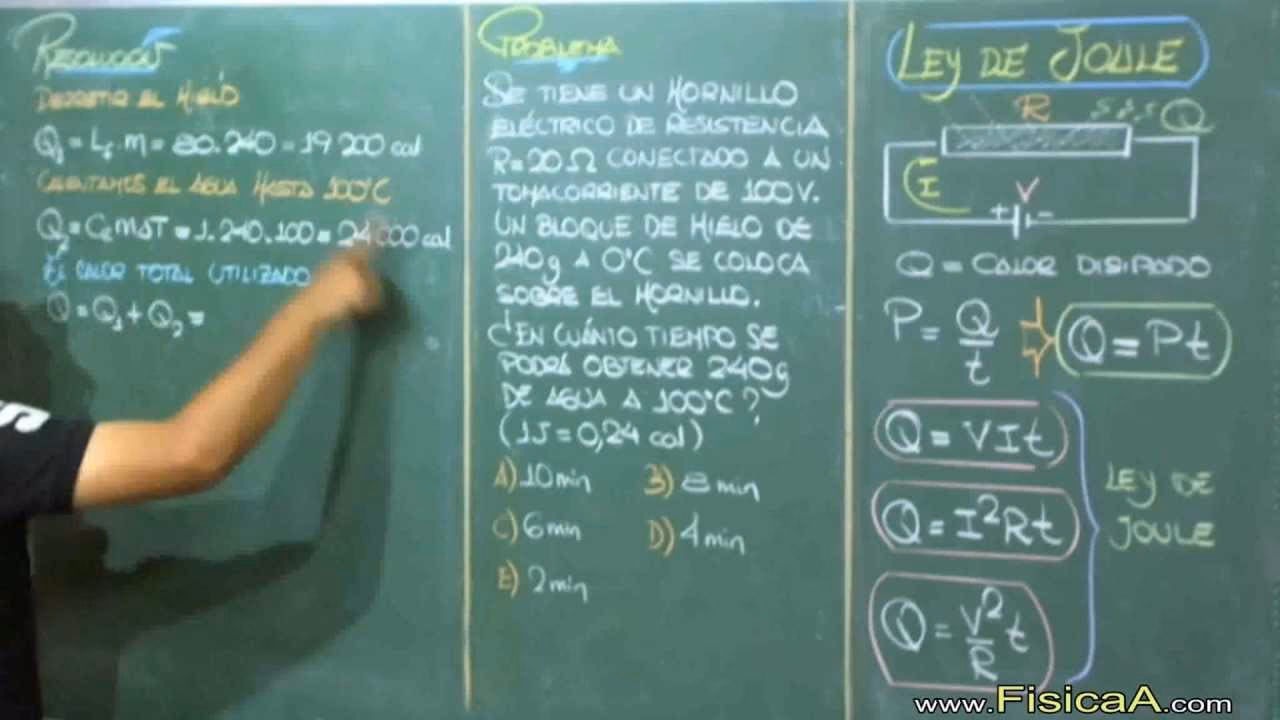 RESOLUCIÓN
DERRETIR EL HIELO
Q₁ = Lf . m = 80.240 = 19 200 cal
CALENTAMOS EL AGUA HASTA 100°C
Q₂ = Ce m ΔT = 1.240.100 = 24 000 cal
EL CALOR TOTAL UTILIZADO
Q = Q₁ + Q₂ =
PROBLEMA
SE TIENE UN HORNILLO
ELÉCTRICO DE RESISTENCIA
R = 20 Ω CONECTADO A UN
TOMACORRIENTE DE 100 V.
UN BLOQUE DE HIELO DE
240 g A 0°C SE COLOCA
SOBRE EL HORNILLO.
¿EN CUÁNTO TIEMPO SE
PODRÁ OBTENER 240 g
DE AGUA A 100°C?
(1J = 0,24 cal)
A) 10 min B) 8 min
C) 6 min D) 4 min
E) 2 min
LEY DE JOULE
R Q
I V
+ -
Q = CALOR DISIPADO
P = Q/t ⇒ Q = Pt
Q = VIt
Q = I²Rt
Q = V²/R t
LEY DE
JOULE
www.FisicaA.com